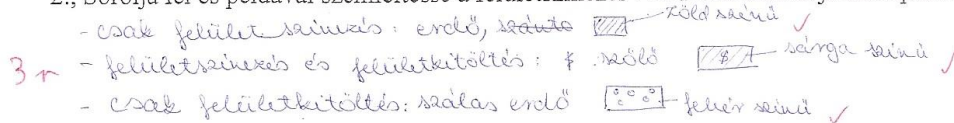 2., Sorolja fel és példával szemléltesse a felület
- csak felület szinezés: erdő, szántó zöld szinű
3 - felületszinezés és felületkitöltés: szőlő $ sárga szinű
- csak felületkitöltés: szálas erdő fehér szinű